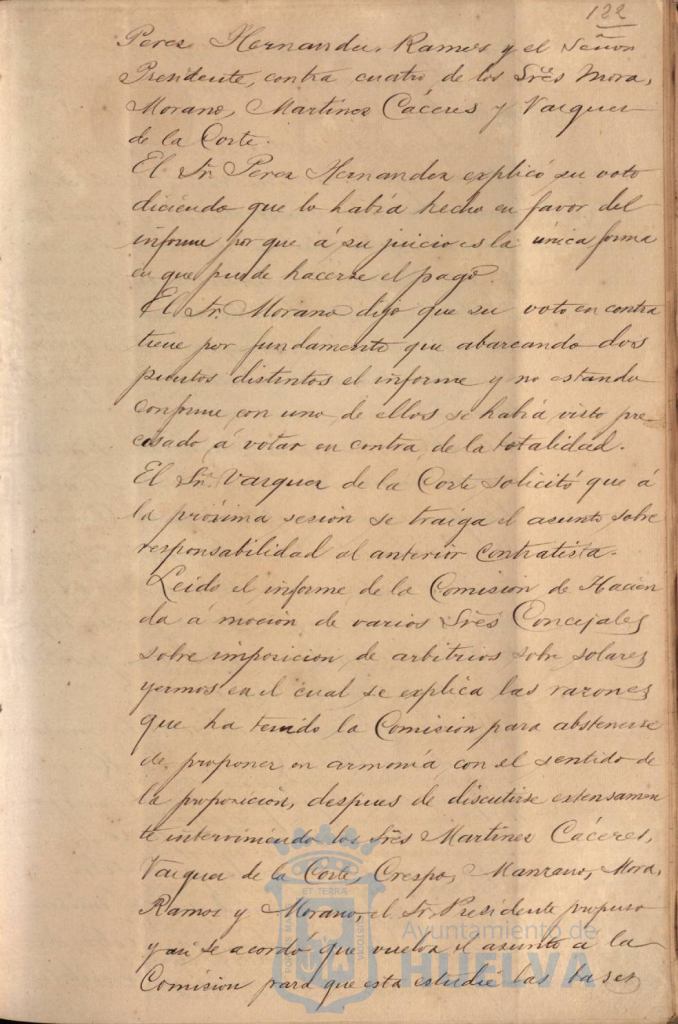 122
Perez Hernandez, Ramos y el Señor
Presidente, contra cuatro de los Sres Mora,
Morano, Martinez Cáceres y Vazquez
de la Corte.
El Sr. Perez Hernandez explicó su voto
diciendo que lo habia hecho en favor del
informe por que á su juicio es la única forma
en que puede hacerse el pago.
El Sr. Morano dijo que su voto en contra
tiene por fundamento que abarcando dos
puntos distintos el informe y no estando
conforme con uno de ellos se habia visto pre
cisado á votar en contra de la totalidad.
El Sr. Vazquez de la Corte solicitó que á
la próxima sesión se traiga el asunto sobre
responsabilidad al anterior contratista.
Leido el informe de la Comision de Hacien
da á moción de varios Sres Concejales
sobre imposicion de arbitrios sobre solares
yermos en el cual se explica las razones
que ha tenido la Comision para abstenerse
de proponer en armonía con el sentido de
la proposición, despues de discutirse extensamen
te interviniendo los Sres Martinez Cáceres,
Vazquez de la Corte, Crespo, Manzano, Mora,
Ramos y Morano, el Sr. Presidente propuso
y asi se acordó que vuelva el asunto á la
Comision para que esta estudie las bases
PORTUS MARIS ET TERRÆ CUSTODIA
Ayuntamiento de
HUELVA